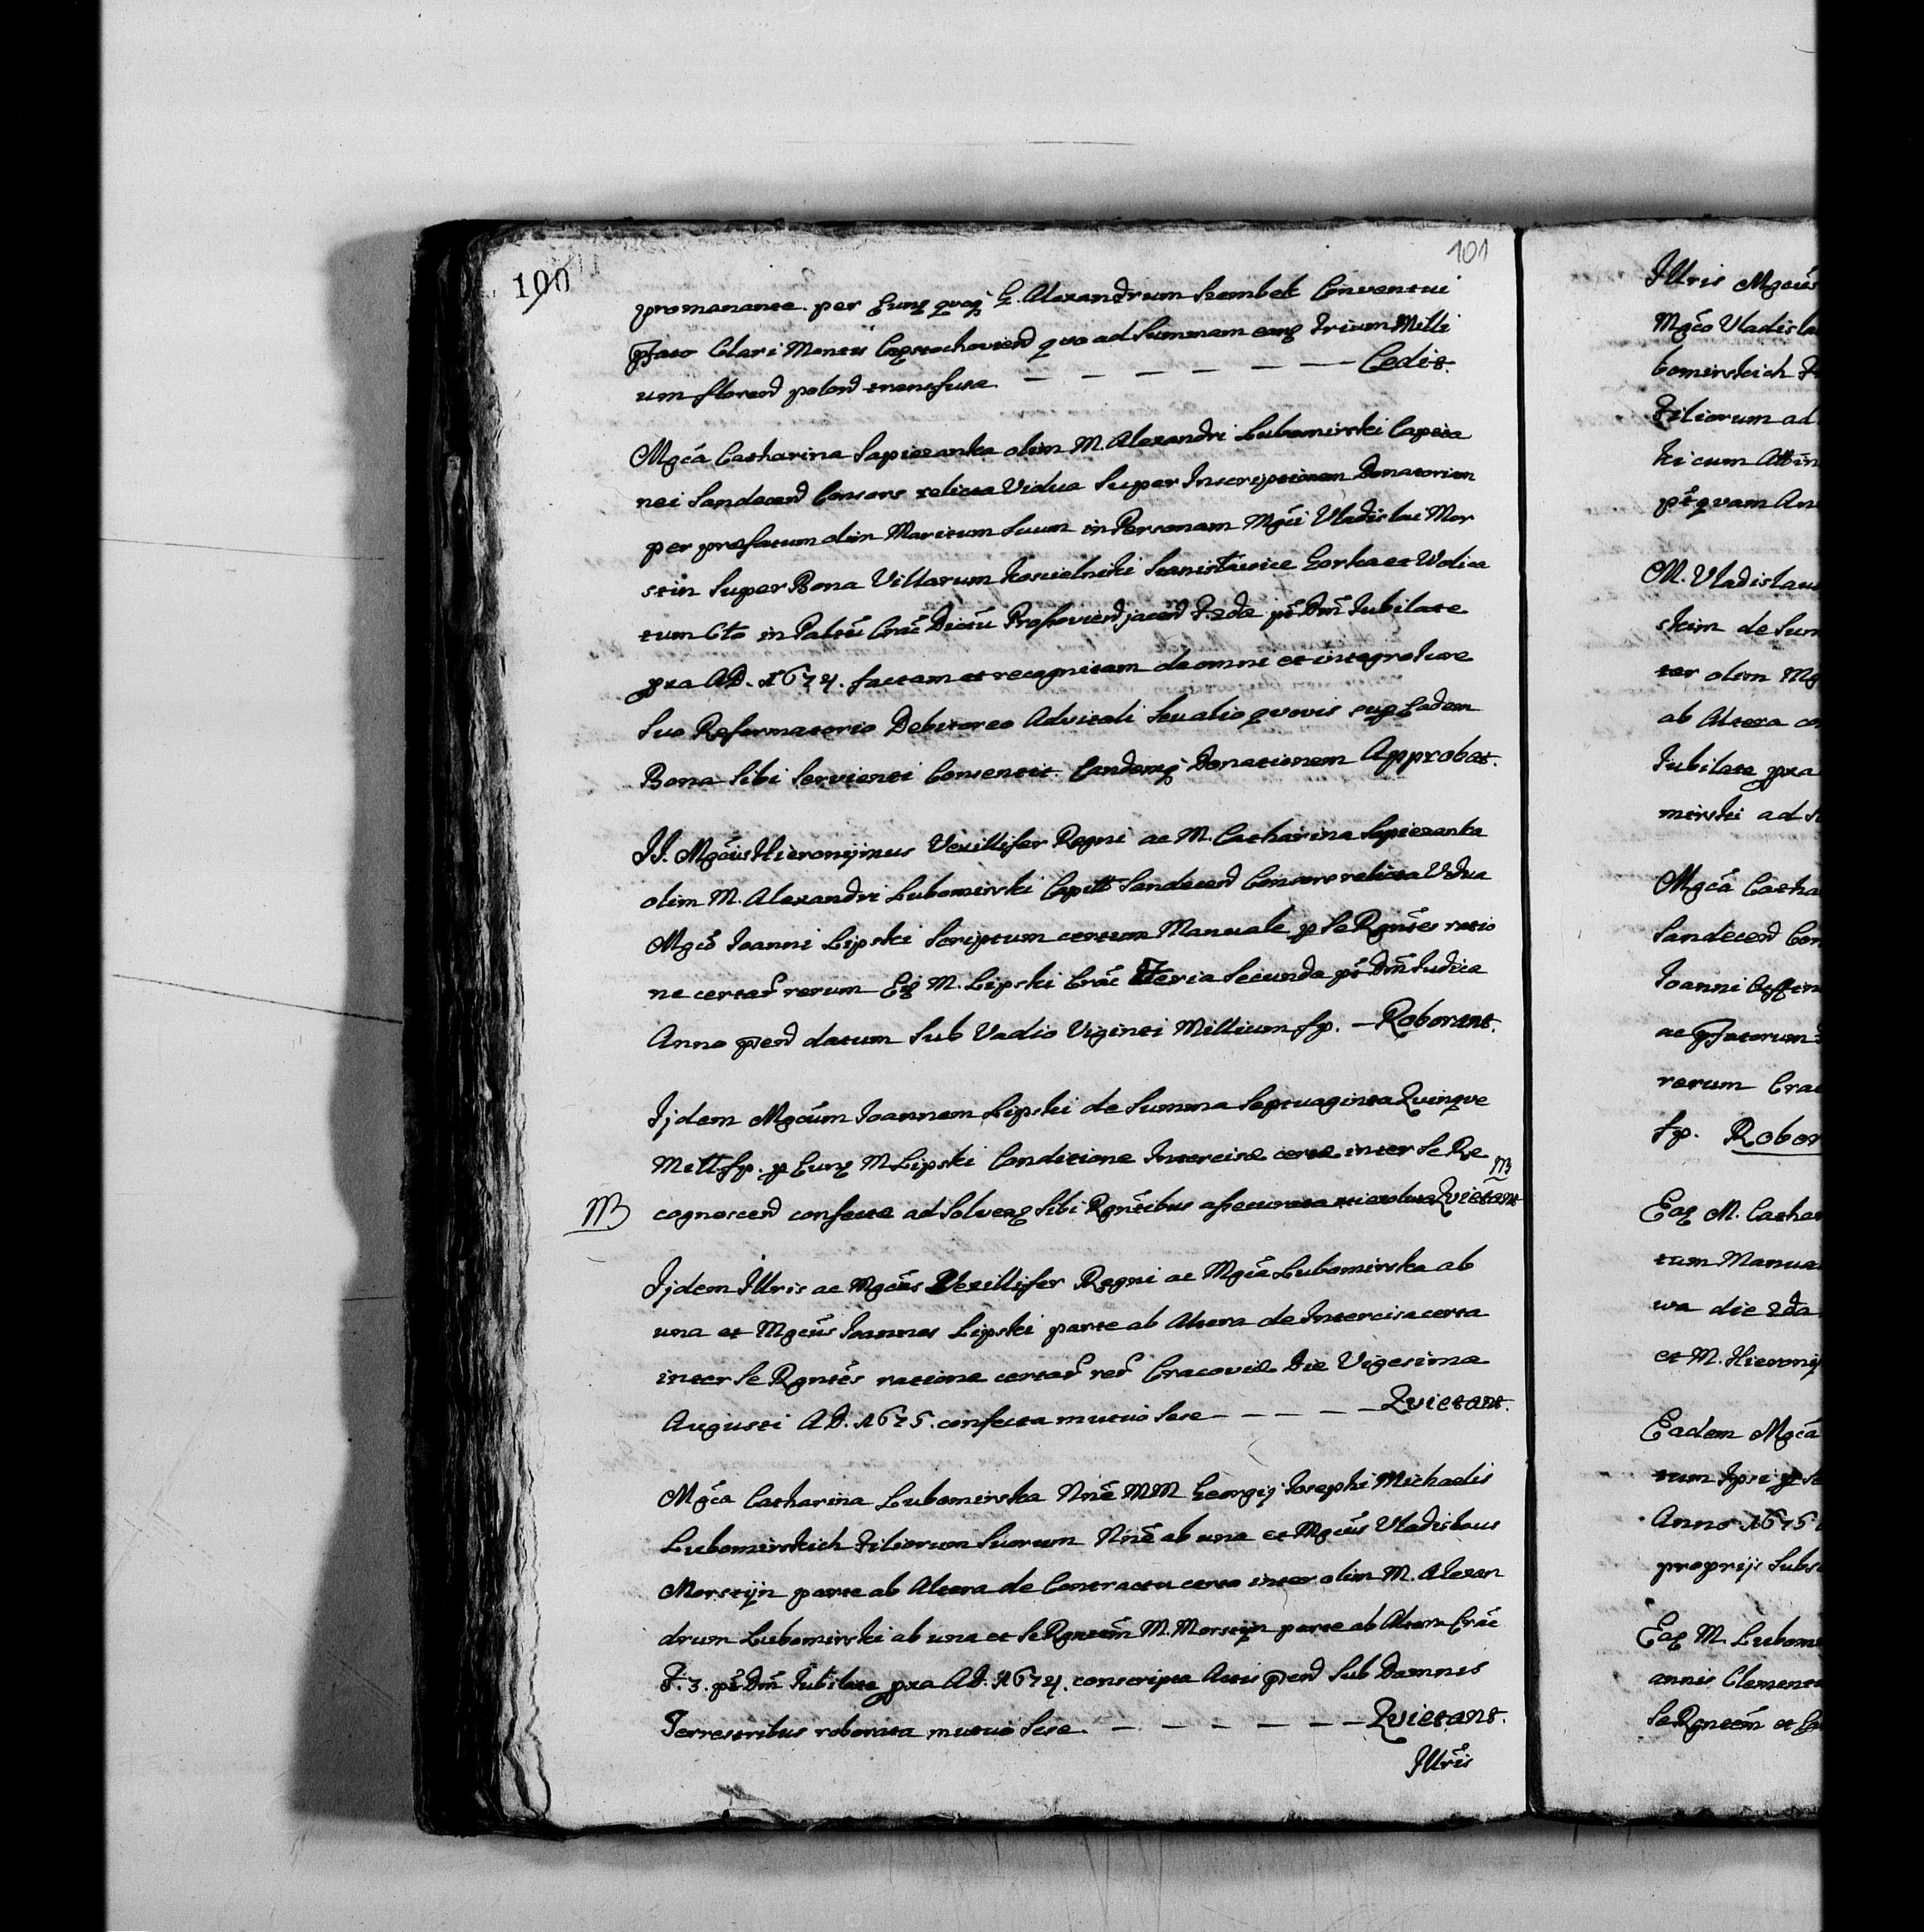 100
101
promanante per Eunq quoq G. Alexandrum Szembek Conventui
pfato Clari Montis Częstochovien quo ad Summam eanq Trium Milli
um floren polon transfusa. — — — — — — — Cedit.
Mgca Catharina Sapiezanka olim M. Alexandri Lubomirski Capita
nei Sandecen Consors relicta Vidua Super Inscriptionem Donatoriam
per praefatum olim Maritum Suum in Personam Mgci Vladislai Mor
stin Super Bona Villarum Koscielniki Stanisławice Gorka et Wolica
tum Cto in Paltu Crac Dictu Proszovien jacen F. 2da pt Dm Jubilate
pxa AD. 1674. factam et recognitam de omni et integro Jure
Suo Reformatorio Debitoreo Advitali Seu alio quovis sup Eadem
Bona Sibi Servienti Consentit. Eandemq Donationem Approbat.
JJ. Mgcus Hieronijmus Vexillifer Regni ac M. Catharina Sapiezanka
olim M. Alexandri Lubomirski Capitt Sandecen Consors relicta Vidua
Mgco Joanni Lipski Scriptum certum Manuale p Se Rgntes ratio
ne certar rerum Eiq M. Lipski Crac Feria Secunda pt Dm Judica
Anno pen datum Sub Vadio Viginti Millium fp. — Roborant.
Ijdem Mgcum Joannem Lipski de Summa Septuaginta Quinque
Mill fp. p Eunq M Lipski Conditione Intercisae certae inter Se Re
cognoscen confectae ad Solvenq Sibi Rgntibus assecurata Quietant
NB
NB
Ijdem Illris ac Mgcus Vexillifer Regni ac Mgca Lubomirska ab
una et Mgcus Joannes Lipski parte ab Altera de Intercisa certa
inter Se Rgntes ratione certar rer Cracoviae Die Vigesima
Augusti AD. 1675. confecta mutuo Sese — — — — Quietant.
Mgca Catharina Lubomirska Nne MM Georgij Josephi Michaelis
Lubomirskich Filiorum Suorum Nne ab una et Mgcus Vladislaus
Morstijn parte ab Altera de Contractu certo inter olim M. Alexan
drum Lubomirski ab una et Se Rgntem M. Morstijn parte ab Altera Crac
F. 3. pt Dm Jubilate pxa AD. 1674. conscripta Actis pen Sub Damnis
Terrestribus roborata mutuo Sese. — — — — — — Quietant.
Illris
Illris Mgcus
Mgco Vladisla
bomirskich
Filiorum ad
ki cum Attin
ptquam An
M. Vladislaus
skim de Sum
ter olim Mg
ab Altera co
Jubilate pxa
mirski ad
Mgca Catha
Sandecen Con
Joanni
ac pfatorum
rerum Crac
fp. Robor
Eaq M. Cathar
tum Manua
wa die 2da
et M. Hieronij
Eadem Mgca
tum Ipsi p Se
Anno 1675
proprijs Subs
Eaq M. Lubom
annis Clement
Se Rgntem et